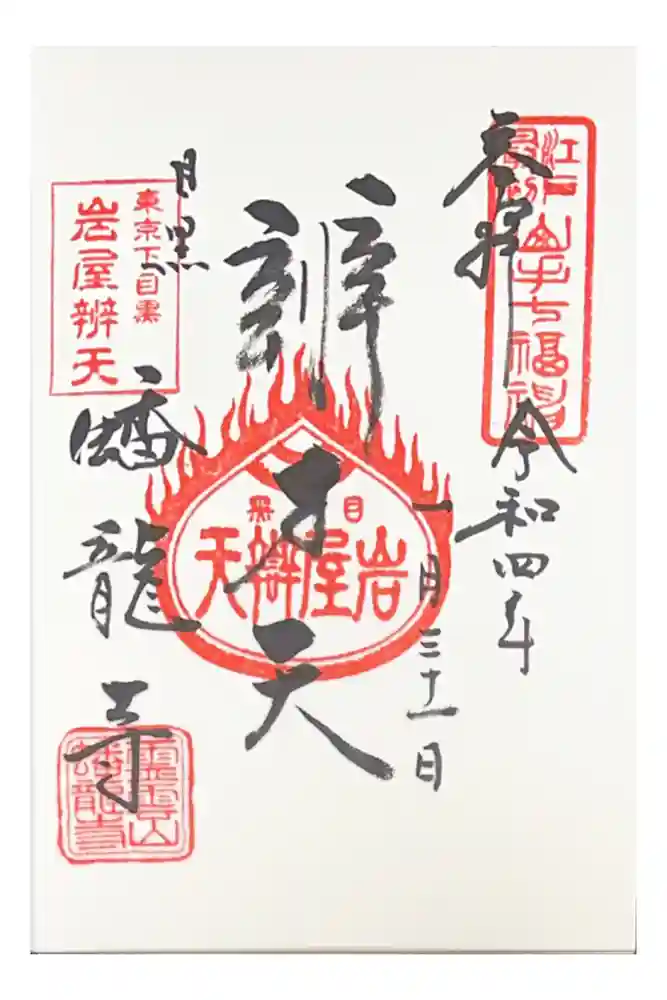 江戸
最初
山手七福神
奉拝
令和四年
一月三十一日
辨才天
目黒
岩屋辨天
目黒
蟠龍寺
東京下目黒
岩屋辨天
霊雲山
蟠龍寺